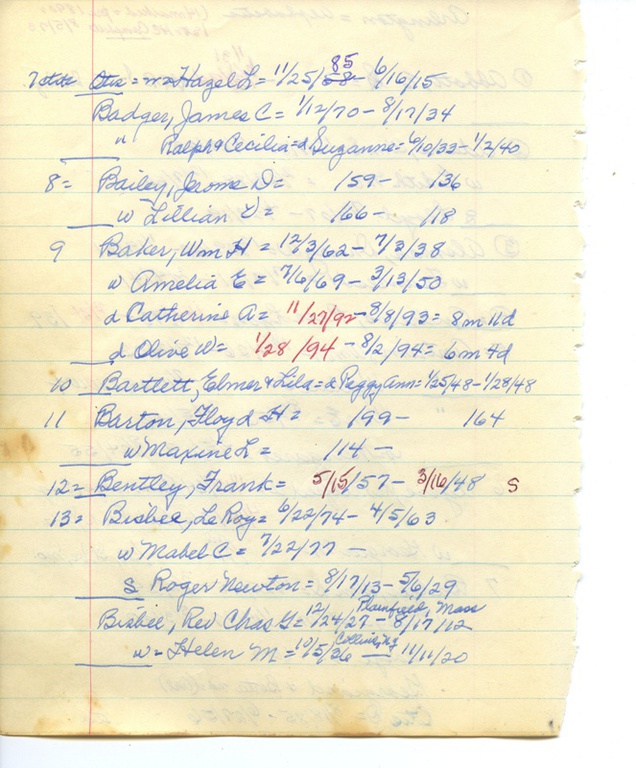 Otis = w = Hazel L = 11/25/85 58 - 6/16/15
Badger, James C = 1/12/70 - 8/17/34
" Ralph & Cecilia = d Suzanne = 6/10/33 - 1/2/40
8 = Bailey, Jerome D = 159 - 136
w Lillian V = 166 - 118
9 Baker, Wm H = 12/3/62 - 7/3/38
w Amelia E = 7/6/69 - 3/13/50
d Catherine A = 11/27/92 - 8/8/93 = 8m 11d
d Olive W = 1/28/94 - 8/2/94 = 6m 4d
10 Bartlett, Elmer & Lila = d Peggy Ann = 1/25/48 - 1/28/48
11 Barton, Floyd H = 199 - 164
w Maxine L = 114 -
12 = Bentley, Frank = 5/15/57 - 3/16/48 S
13 = Bisbee, Le Roy = 6/22/74 - 4/5/63
w Mabel C = 7/22/77 -
S Roger Newton = 8/17/13 - 5/6/29
Plainfield, Mass
Bisbee, Rev Chas G = 12/24/27 - 8/17/12
w = Helen M = 10/5/36 — 11/11/20